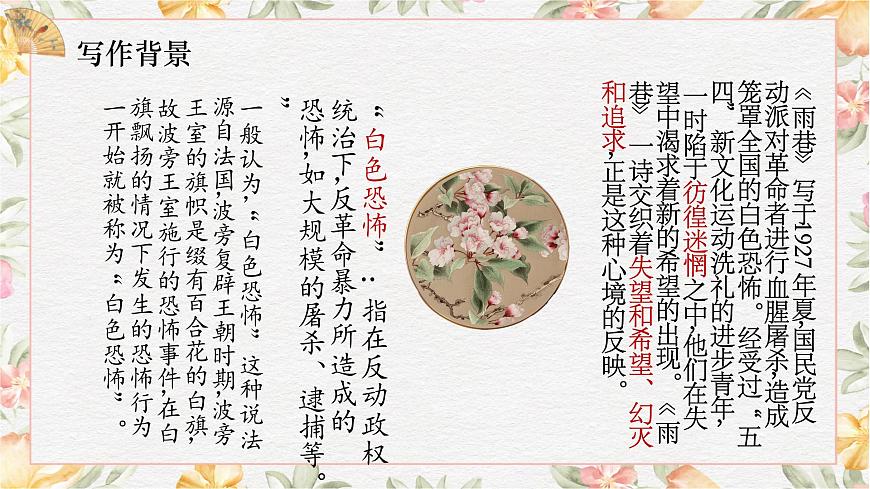 写作背景
《雨巷》 写于1927年夏,国民党反
动派对革命者进行血腥屠杀,造成
笼罩全国的白色恐怖。 经受过 “五
四” 新文化运动洗礼的进步青年,
一时陷于彷徨迷惘之中,他们在失
望中渴求着新的希望的出现。《雨
巷》 一诗交织着失望和希望、幻灭
和追求,正是这种心境的反映。
“白色恐怖”:指在反动政权
统治下,反革命暴力所造成的
恐怖,如大规模的屠杀、逮捕等。
”
一般认为,“白色恐怖” 这种说法
源自法国,波旁复辟王朝时期,波旁
王室的旗帜是缀有百合花的白旗,
故波旁王室施行的恐怖事件,在白
旗飘扬的情况下发生的恐怖行为
一开始就被称为“白色恐怖”。